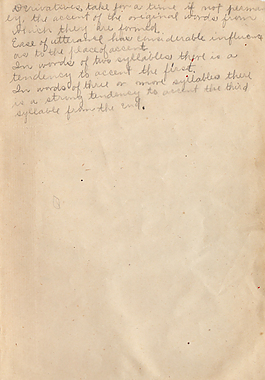 Derivatives, take for a time if not perman
ly, the accent of the original words from
which they are formed.
Ease of utterance has considerable influence
as to the place of accent.
In words of two syllables there is a
tendency to accent the first.
In words of three or more syllables there
is a strong tendency to accent the third
syllable from the end.